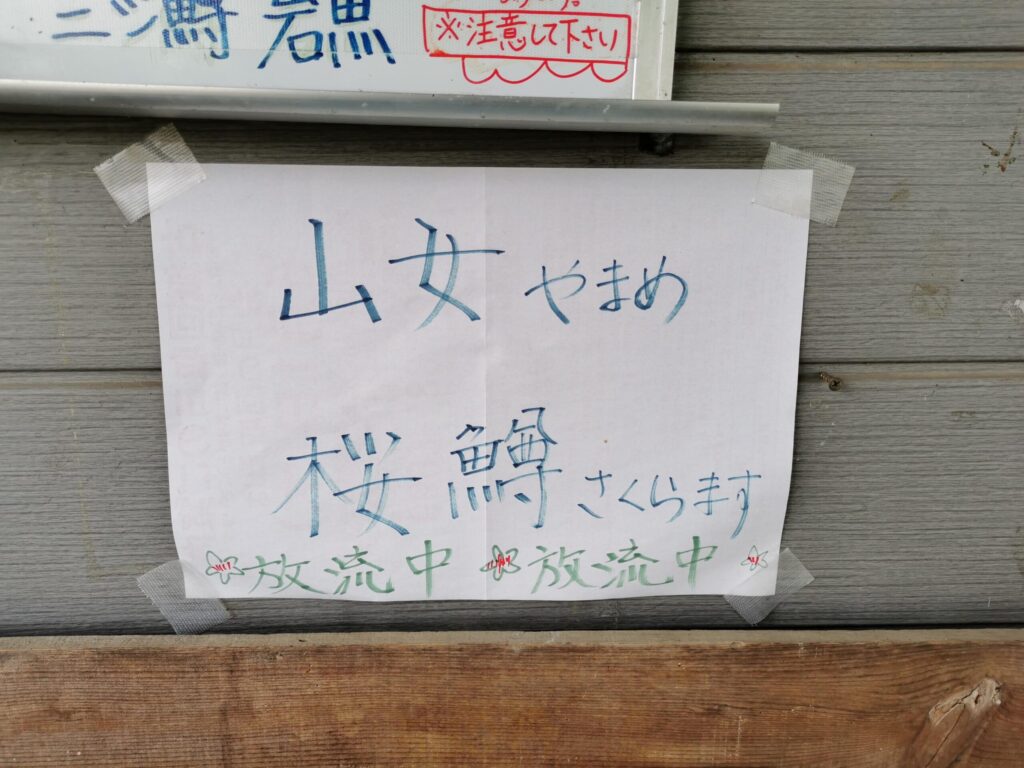 ニジ鱒 岩魚
※注意して下さい
山女 やまめ
桜鱒 さくらます
放流中 放流中